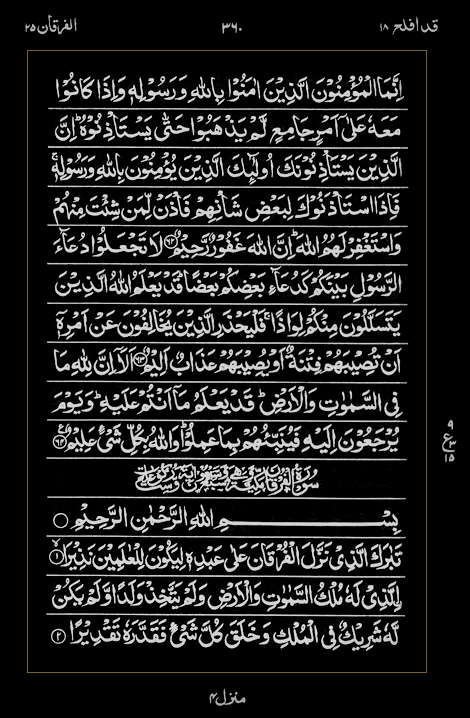 قد افلح ۱۸
۳۶۰
الفرقان ۲۵
اِنَّمَا الْمُؤْمِنُوْنَ الَّذِيْنَ اٰمَنُوْا بِاللّٰهِ وَرَسُوْلِهٖ وَاِذَا كَانُوْا
مَعَهٗ عَلٰٓى اَمْرٍ جَامِعٍ لَّمْ يَذْهَبُوْا حَتّٰى يَسْتَاْذِنُوْهُ ؕ اِنَّ
الَّذِيْنَ يَسْتَاْذِنُوْنَكَ اُولٰٓئِكَ الَّذِيْنَ يُؤْمِنُوْنَ بِاللّٰهِ وَرَسُوْلِهٖ ۚ
فَاِذَا اسْتَاْذَنُوْكَ لِبَعْضِ شَاْنِهِمْ فَاْذَنْ لِّمَنْ شِئْتَ مِنْهُمْ
وَاسْتَغْفِرْ لَهُمُ اللّٰهَ ؕ اِنَّ اللّٰهَ غَفُوْرٌ رَّحِيْمٌ ﴿۶۲﴾ لَا تَجْعَلُوْا دُعَآءَ
الرَّسُوْلِ بَيْنَكُمْ كَدُعَآءِ بَعْضِكُمْ بَعْضًا ؕ قَدْ يَعْلَمُ اللّٰهُ الَّذِيْنَ
يَتَسَلَّلُوْنَ مِنْكُمْ لِوَاذًا ۚ فَلْيَحْذَرِ الَّذِيْنَ يُخَالِفُوْنَ عَنْ اَمْرِهٖۤ
اَنْ تُصِيْبَهُمْ فِتْنَةٌ اَوْ يُصِيْبَهُمْ عَذَابٌ اَلِيْمٌ ﴿۶۳﴾ اَلَاۤ اِنَّ لِلّٰهِ مَا
فِى السَّمٰوٰتِ وَالْاَرْضِ ؕ قَدْ يَعْلَمُ مَاۤ اَنْتُمْ عَلَيْهِ ؕ وَيَوْمَ
يُرْجَعُوْنَ اِلَيْهِ فَيُنَبِّئُهُمْ بِمَا عَمِلُوْا ؕ وَاللّٰهُ بِكُلِّ شَىْءٍ عَلِيْمٌ ﴿۶۴﴾
ع
۹
۳
۱۵
بِسْمِ اللّٰهِ الرَّحْمٰنِ الرَّحِيْمِ
تَبٰرَكَ الَّذِىْ نَزَّلَ الْفُرْقَانَ عَلٰى عَبْدِهٖ لِيَكُوْنَ لِلْعٰلَمِيْنَ نَذِيْرًا ﴿۱﴾
اِۨلَّذِىْ لَهٗ مُلْكُ السَّمٰوٰتِ وَالْاَرْضِ وَلَمْ يَتَّخِذْ وَلَدًا وَّلَمْ يَكُنْ
لَّهٗ شَرِيْكٌ فِى الْمُلْكِ وَخَلَقَ كُلَّ شَىْءٍ فَقَدَّرَهٗ تَقْدِيْرًا ﴿۲﴾
منزل ۴